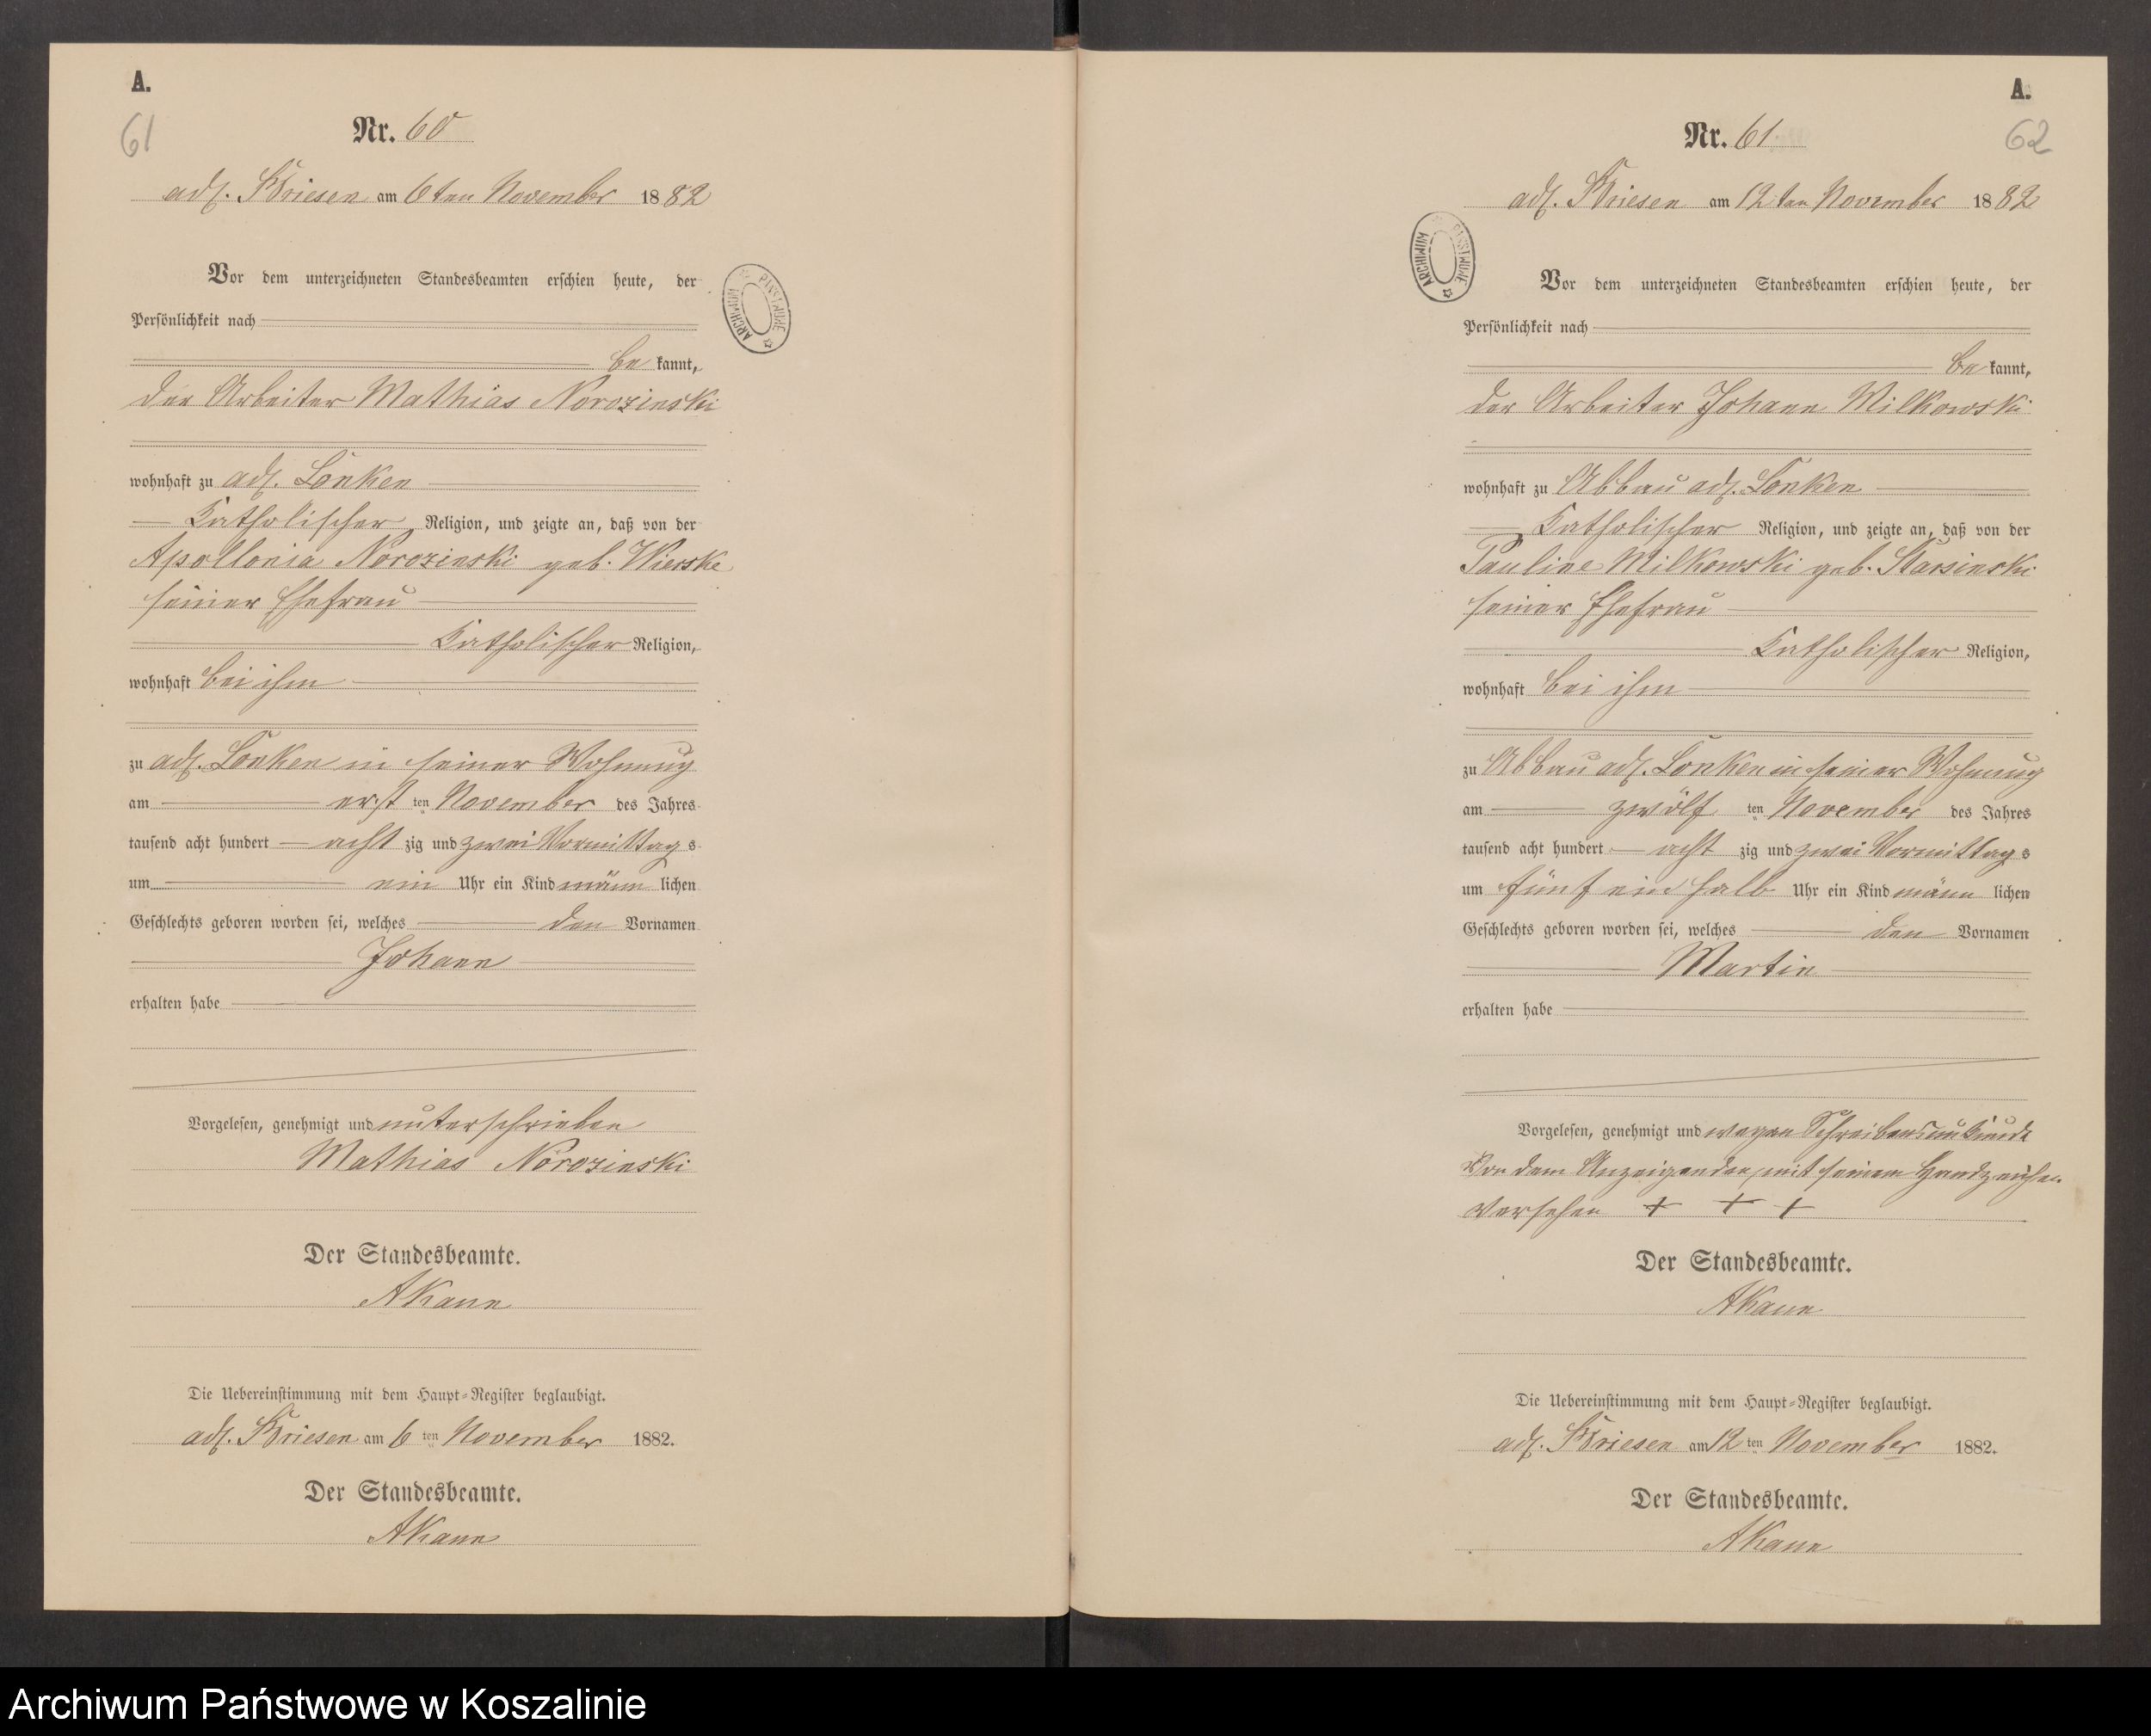 A.
61
Nr. 60
adl. Briesen am 6ten November 1882
Vor dem unterzeichneten Standesbeamten erschien heute, der
Persönlichkeit nach
be kannt,
der Arbeiter Mathias Norozinski
wohnhaft zu adl. Lonken
Katholischer Religion, und zeigte an, daß von der
Apollonia Norozinski geb. Wierske
seiner Ehefrau
Katholischer Religion,
wohnhaft bei ihm
zu adl. Lonken in seiner Wohnung
am erst ten November des Jahres
tausend acht hundert acht zig und zwei Vormittags
um ein Uhr ein Kind männ lichen
Geschlechts geboren worden sei, welches den Vornamen
Johann
erhalten habe
Vorgelesen, genehmigt und unterschrieben
Mathias Norozinski
Der Standesbeamte.
AKann
Die Uebereinstimmung mit dem Haupt-Register beglaubigt.
adl. Briesen am 6 ten November 1882.
Der Standesbeamte.
AKann
ARCHIWUM PAŃSTWOWE
A.
62
Nr. 61
adl. Briesen am 12ten November 1882
ARCHIWUM PAŃSTWOWE
Vor dem unterzeichneten Standesbeamten erschien heute, der
Persönlichkeit nach
be kannt,
der Arbeiter Johann Milkowski
wohnhaft zu Abbau adl. Lonken
Katholischer Religion, und zeigte an, daß von der
Pauline Milkowski geb.
seiner Ehefrau
Katholischer Religion,
wohnhaft bei ihm
zu Abbau adl. Lonken in seiner Wohnung
am zwölf ten November des Jahres
tausend acht hundert acht zig und zwei Vormittags
um fünf ein halb Uhr ein Kind männ lichen
Geschlechts geboren worden sei, welches den Vornamen
Martin
erhalten habe
Vorgelesen, genehmigt und wegen Schreibensunkunde
von dem Anzeigenden mit seinem Handzeichen
versehen + + +
Der Standesbeamte.
AKann
Die Uebereinstimmung mit dem Haupt-Register beglaubigt.
adl. Briesen am 12 ten November 1882.
Der Standesbeamte.
AKann
Archiwum Państwowe w Koszalinie